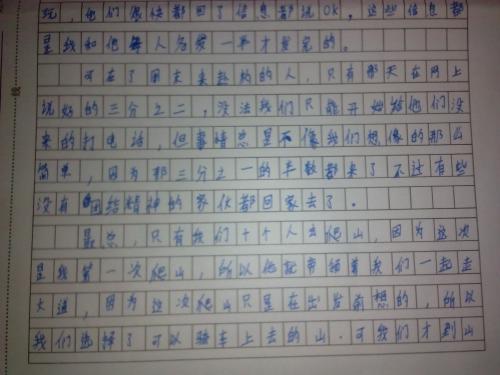 玩，他们很快都回了信息都说OK，这些信息都
是我和他每人负责一半才发完的。
可在了周末来赴约的人，只有那天在网上
说好的三分之二，没法我们只能开始给他们没
来的打电话，但事情总是不像我们想像的那么
简单，因为那三分之一的半数都来了不过有些
没有团结精神的家伙都回家去了。
最总，只有我们十个人去爬山，因为这次
是我第一次爬山，所以他就带领着我们一起走
大道，因为这次爬山只是在出发前想的，所以
我们选择了可以骑车上去的山。可我们才到山